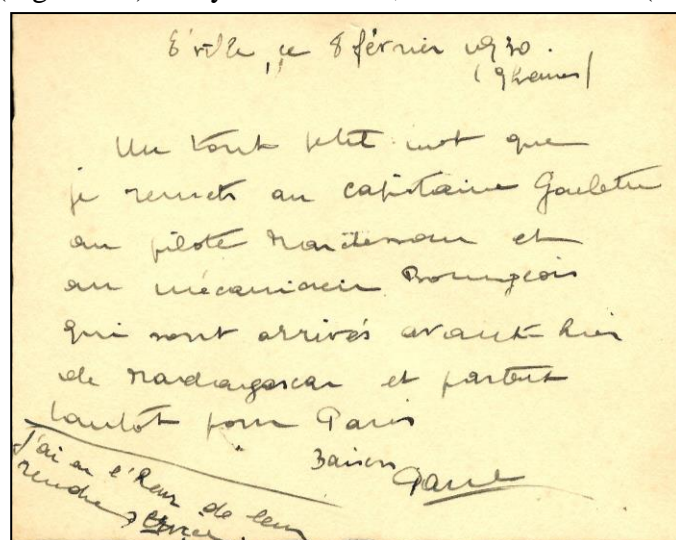 E'ville, ce 8 février 1930.
(9 heures)
Un tout petit mot que
je remets au capitaine Goulette
au pilote et
au mécanicien Bourgeois
qui sont arrivés avant-hier
de Madagascar et partent
tantôt pour Paris
Baisers
J'ai eu l'Heur de leur
rendre service.